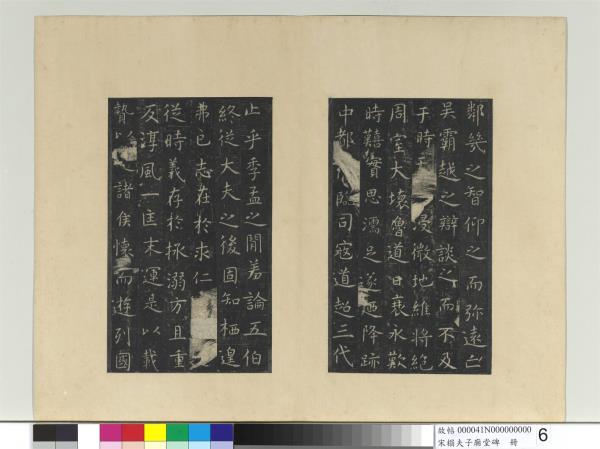 鄰幾之智仰之而弥遠亡
吳霸越之辯談之而不及
于時天 浸微地維將絶
周室大壞魯道日衰永歎
時艱實思濡足遂迺降跡
中都 臨司寇道超三代
止乎季孟之閒羞論五伯
終從大夫之後固知栖遑
弗已志在於求仁
從時義存於拯溺方且重
反淳風一匡末運是以載
贄以 諸侯懷 而遊列國
故帖 000041N000000000
宋榻夫子廟堂碑 冊
6